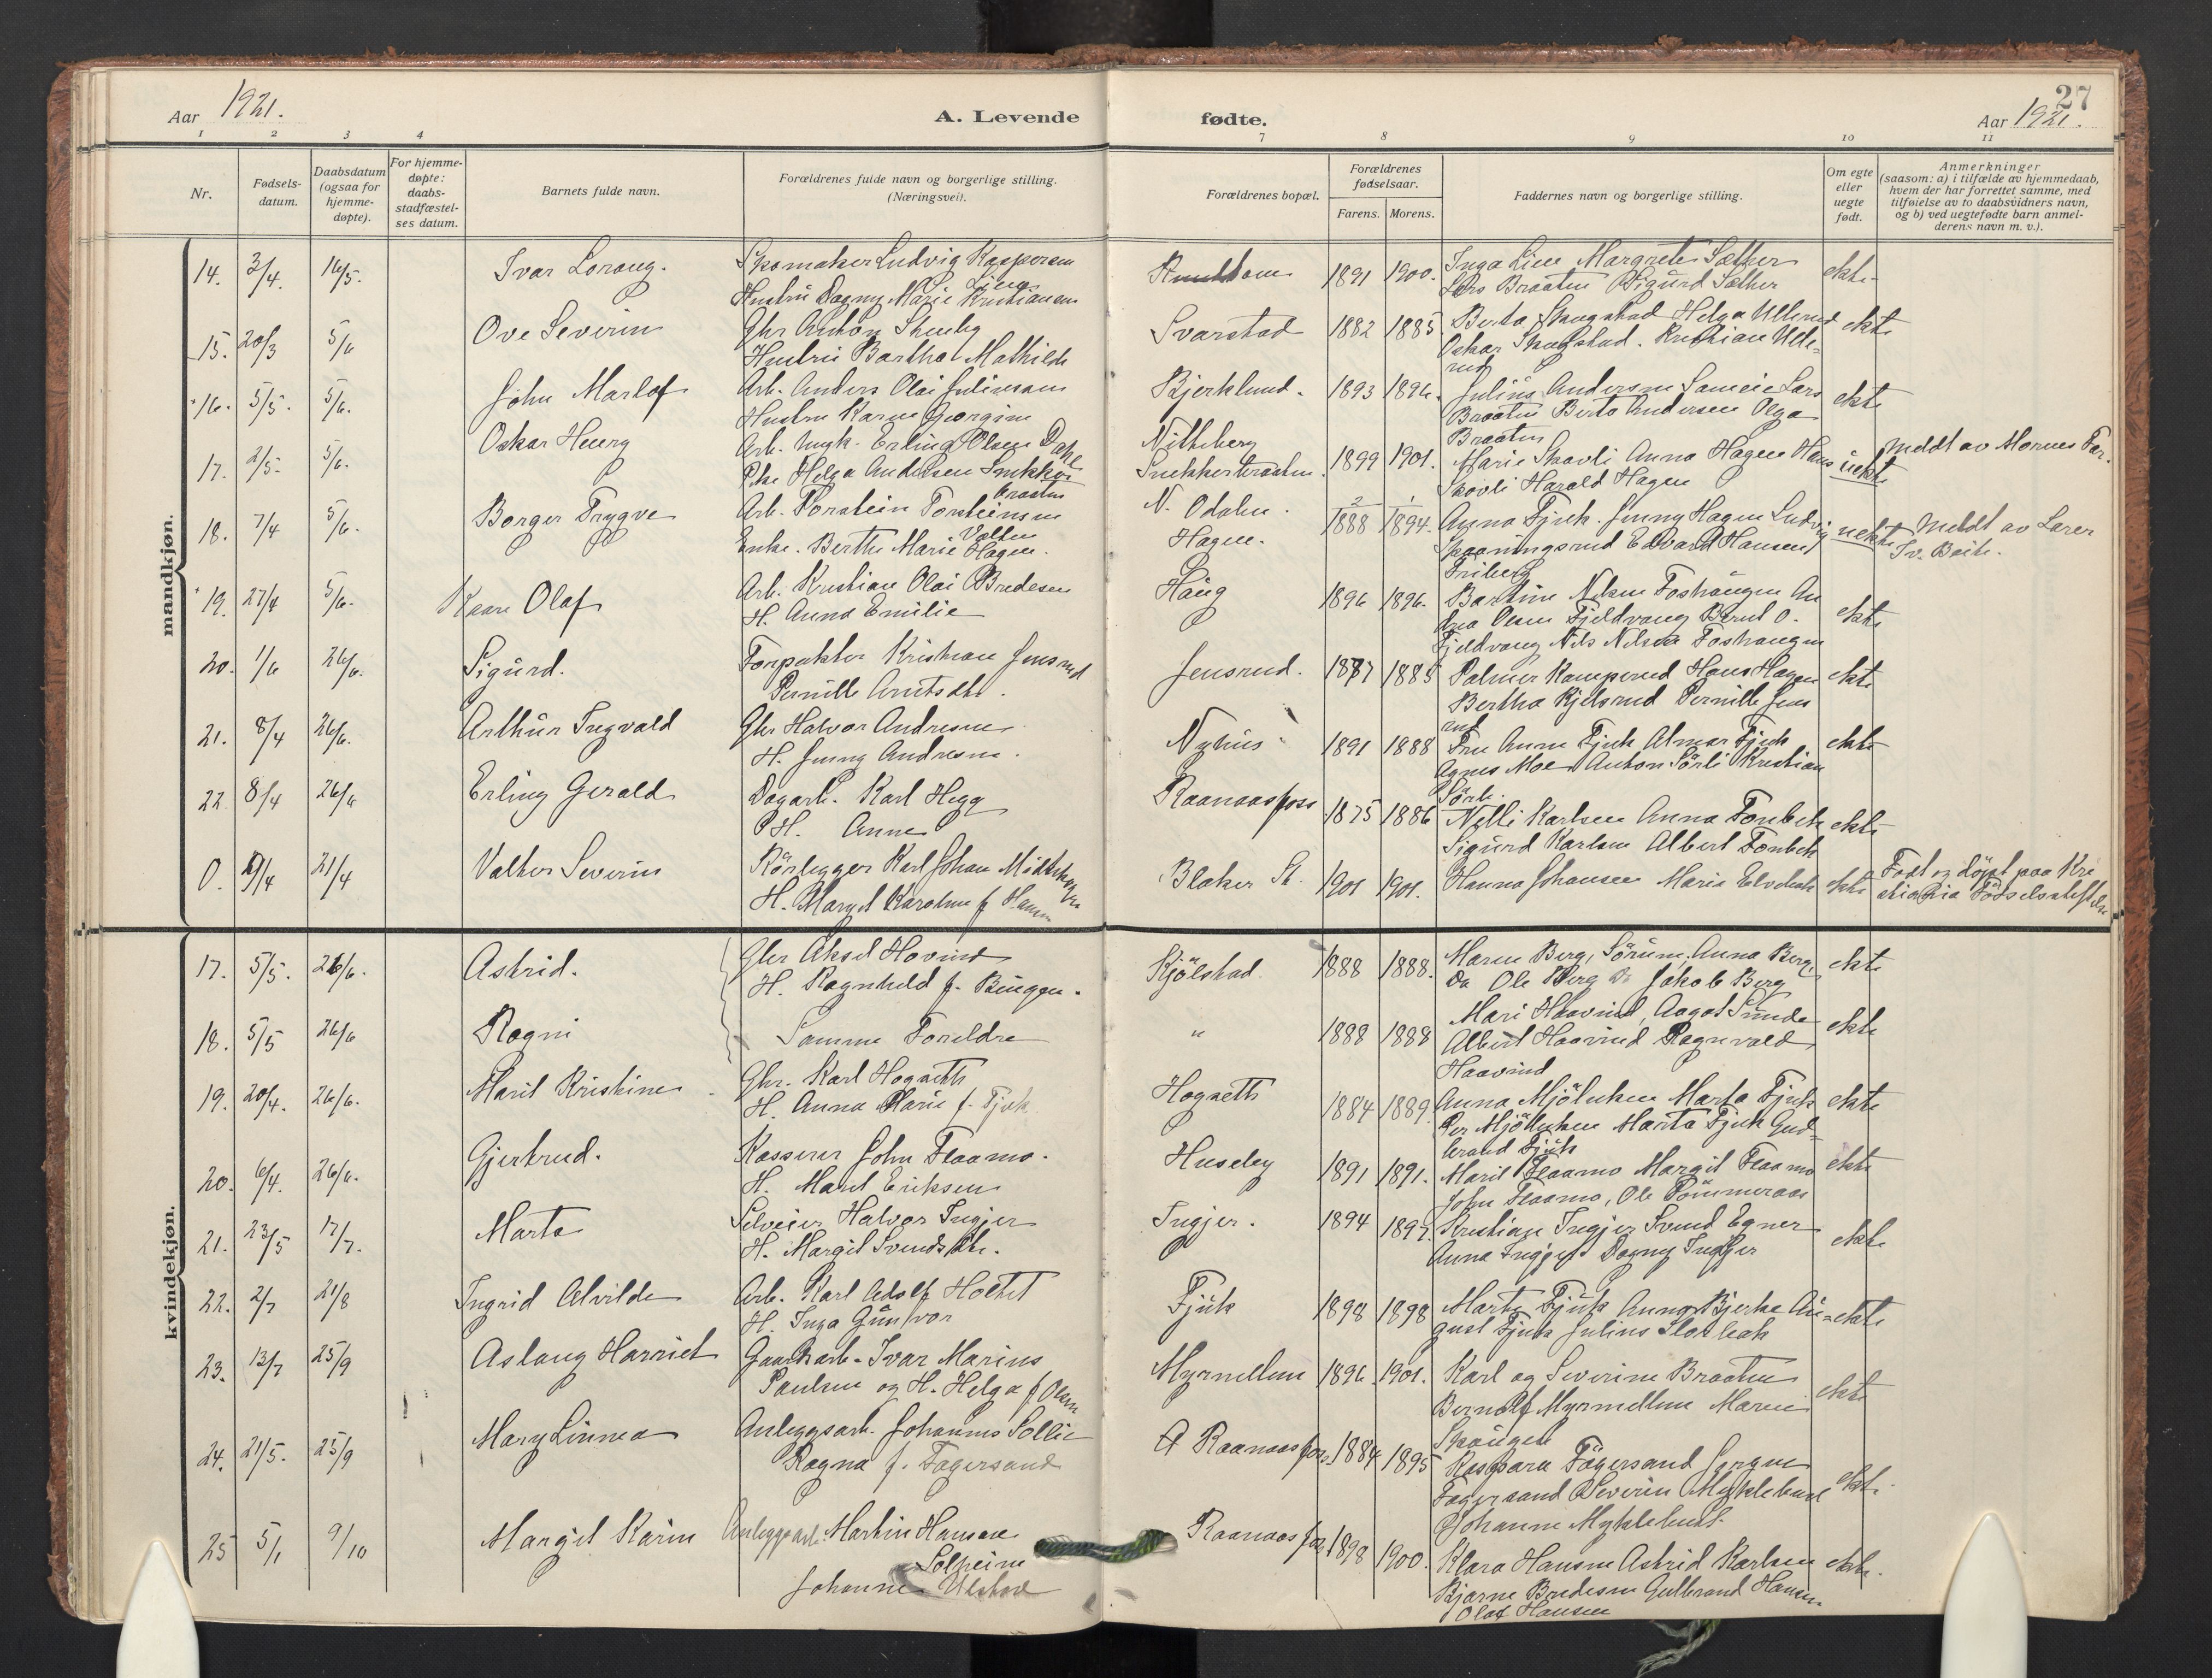 27
Aar 1921.
A. Levende
fødte.
Aar 1921.
1 2 3 4
7 8 9 10 11
Nr.
Fødsels-
datum.
Daabsdatum
(ogsaa for
hjemme-
døpte).
For hjemme-
døpte:
daabs-
stadfæstel-
ses datum.
Barnets fulde navn.
Forældrenes fulde navn og borgerlige stilling.
(Næringsvei).
Forældrenes bopæl.
Forældrenes
fødselsaar.
Farens. Morens.
Faddernes navn og borgerlige stilling.
Om egte
eller
uegte
født.
Anmerkninger
(saasom: a) i tilfælde av hjemmedaab,
hvem der har forrettet samme, med
tilføielse av to daabsvidners navn,
og b) ved uegtefødte barn anmel-
derens navn m. v.).
mandkjøn.
14. 3/4. 16/5. Ivar Lorang. Skomaker Ludvig Kaspersen
Lien
Hustru Dagny Marie Kristiansen
1891 1900. Inga Lien Margrete Sæther
Lars Braaten Sigurd Sæther
ekte
15. 20/3 5/6 Ove Severin Gbr Anton
Hustru Bertha Mathilde
Svarstad 1882 1885. Berta Skaugstad Helga Ullerud
Oskar Skaugstad. Kristian Ulle-
rud
ekte
16. 5/5. 5/6. John Marlof Arb. Anders Olai Julinssen
Hustru Karen Georgine
Bjerklund. 1893 1896. Julius Andersen Lars
Braaten Berta Andersen Olga
Braaten
ekte
17. 2/5. 5/6. Oskar Henry Arb. Ungk. Erling Olsen Dahl
Pike Helga Andersen Snekker
braaten
Nitteberg
Snekkerbraaten. 1899 1901. Marie Skovli Anna Hagen Hans
Skovli Harald Hagen
uekte
Meldt av Morens Far.
18. 7/4 5/6. Borger Trygve Arb. Torstein Torsteinsen
Enke. Berthe Marie Hagen.
N. Odalen.
Hagen.
2 1
1888 1894. Anna Fjuk. Jenny Hagen Ludvig
Spaaningsrud Edvard Hansen
Friberg
uekte
Meldt av Lærer
Iv. Boite.
19. 27/4 5/6. Kaare Olaf Arb. Kristian Olai Bredesen
H. Anna Emilie
Haug 1896 1896. Bartine Nilsen Foshaugen An
dna Olsen Fjeldvang Bernt O.
Fjeldvang Nils Nilsen Foshaugen
ekte
20. 1/6 26/6. Sigurd. Forpakter Kristian Jensrud
Pernille Arntsdtr.
Jensrud. 1887 1885 Palmer Kamperud Hans Hagen
Bertha Kjelsrud Pernille Jens
rud
ekte
21. 8/4 26/6. Arthur Ingvald Gbr Halvor Andresen
H. Jenny Andresen.
Nyhus 1891 1888 Fru Anne Fjuk Almar Fjuk
Agnes Moe Anton Sörli Kristian
Sörli.
ekte
22. 8/4 26/6 Erling Gerald Dagarb. Karl Hegg
H. Anne
Raanaasfoss 1875 1886 Nelli Karlsen Anna Fonbek
Sigurd Karlsen Albert Fonbek
ekte
0. 9/4 21/4 Valter Severin Rörlegger Karl Johan Midtskogen
H. Margit Karoline f. Hansen
Blaker St. 1901 1901. Hanna Johansen Maria Elvebak
ekte
Født og döpt paa Kri
stiania Födselsstiftelse
kvindekjøn.
17. 5/5. 26/6. Astrid. Gbr Aksel Hovind
H. Ragnhild f. Bingen.
Kjölstad. 1888 1888. Maren Berg, Sörum, Anna Berg,
Do Ole Berg Do Jakob Berg
ekte
18. 5/5 26/6 Ragni Samme Foreldre
" 1888 1888 Mari Haavind, Aagot Sunde
Albert Haavind Ragnvald
Haavind
ekte
19. 20/4. 26/6. Marit Kristine Gbr. Karl Hogseth
H. Anna Marie f. Fjuk
Hogseth 1884 1889 Anna Mjöluken Marta Fjuk
Per Mjöluken Marta Fjuk Gud-
brand Fjuk
ekte
20. 6/4. 26/6. Gjertrud. Kasserer John Flaamo.
H. Marit Eriksen
Huseby 1891 1891. Marit Flaamo Margit Flaamo
John Flaamo, Ole Pömmeraas
ekte
21. 23/5 17/7. Marta Selveier Halvor Ingjer
H. Margit Svendsdtr.
Ingjer. 1894 1897. Kristian Ingjer Svend Egner
Anna Ingjer Dagny Ingjer
ekte
22. 2/7 21/8 Ingrid Alvilde Arb. Karl Adolf Holtet
H. Inga Gunvor
Fjuk 1898 1898 Marte Fjuk Anna Bjerke Au-
gust Fjuk Julius Slorbak
ekte
23. 13/7 25/9 Aslaug Harriet Gaardsarb. Ivar Marius
Paulsen og H. Helga f Olsen
Myrmellem 1896. 1901. Karl og Severine Braaten
Bernolf Myrmellem Maren
Skaugen
ekte
24. 21/5. 25/9 Mary Linnea Anlegsarb. Johannes Sollie
Ragna f. Fagersand
Raanaasfoss. 1884 1895 Kaspara Fagersand Jørgen
Fagersand Severin Myklebust
Johanne Myklebust.
ekte.
25 5/1 9/10 Margit Karin Anleggsarb. Martin Hansen
Solheim
Johanne Ulstad
Raanaasfoss 1898 1900. Klara Hansen Astrid Karlsen
Bjarne Bredesen Gulbrand Hansen
Olaf Hansen
ekte.